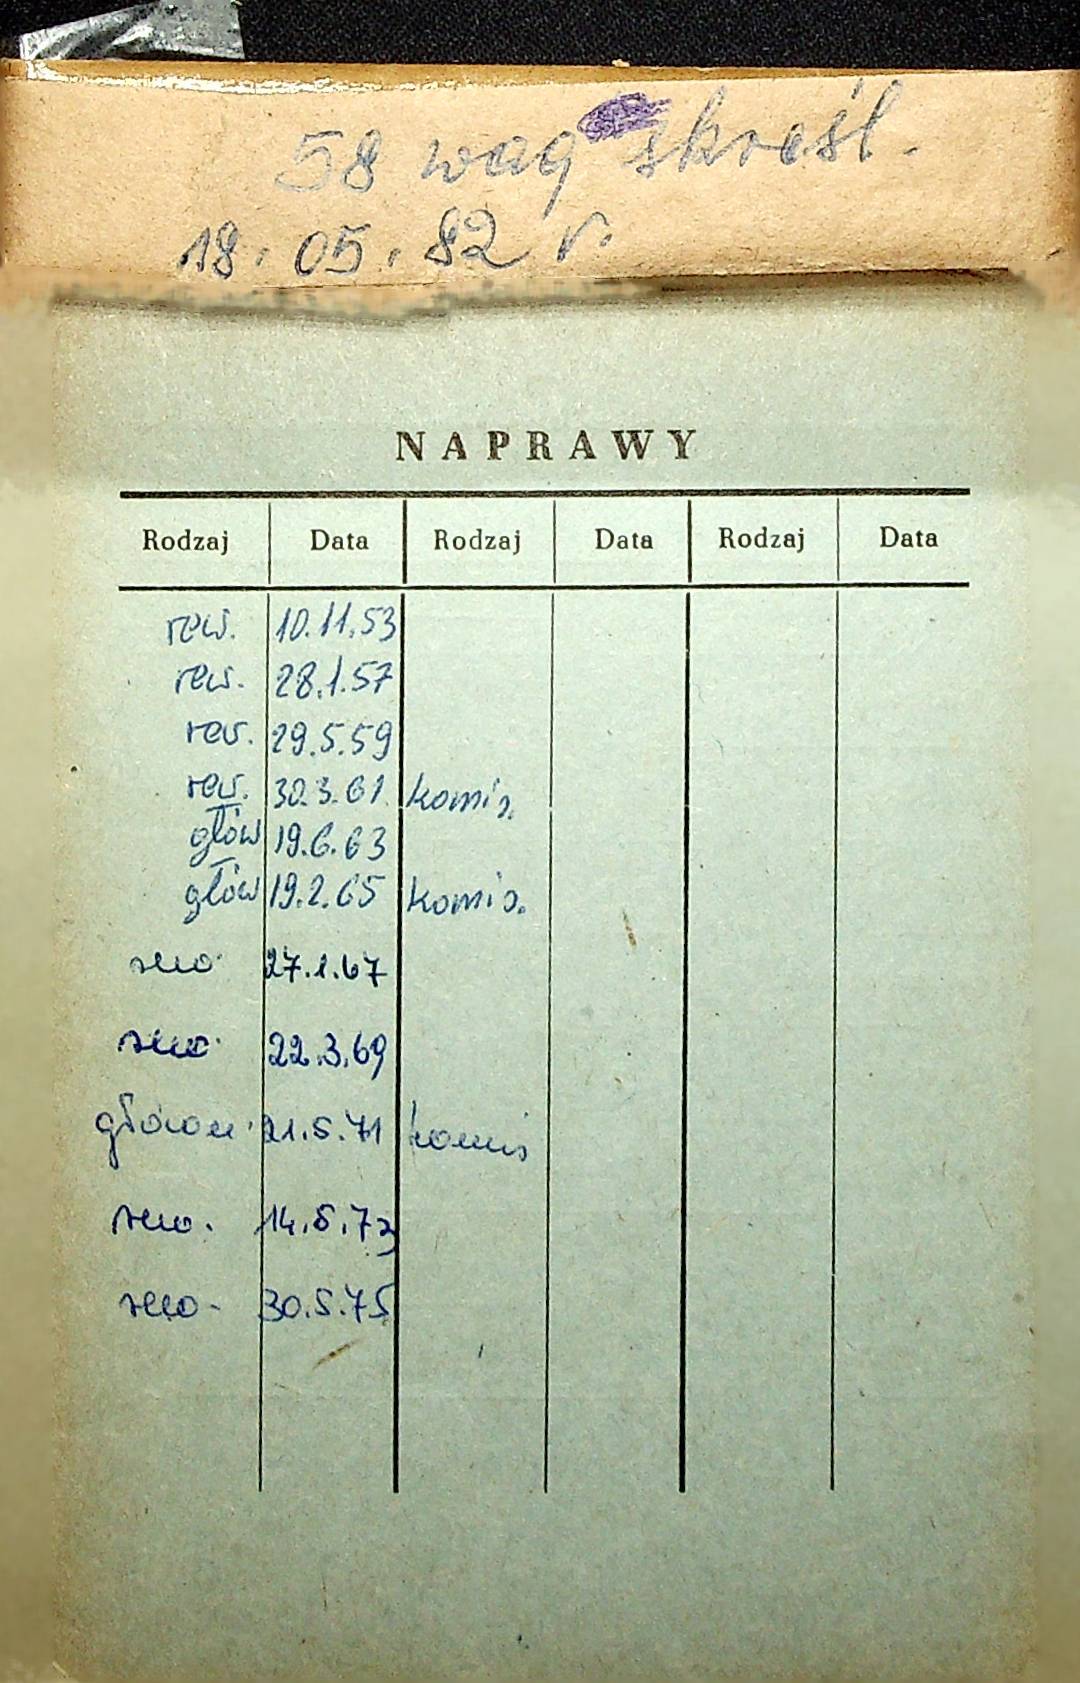 58 wag skreśl.
18. 05. 82 r.
NAPRAWY
Rodzaj Data Rodzaj Data Rodzaj Data
rew. 10.11.53
rew. 28.1.57
rew. 29.5.59
rew. 30.3.61. komis.
głów 19.6.63
głów 19.2.65 komis.
27.1.67
22.3.69
główn. 21.5.71 komis
14.5.73
30.5.75